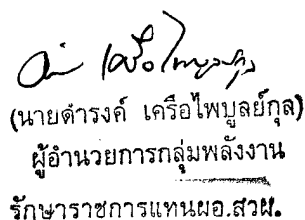 (นายดำรงค์ เครือไพบูลย์กุล)
ผู้อำนวยการกลุ่มพลังงาน
รักษาราชการแทนผอ.สวผ.